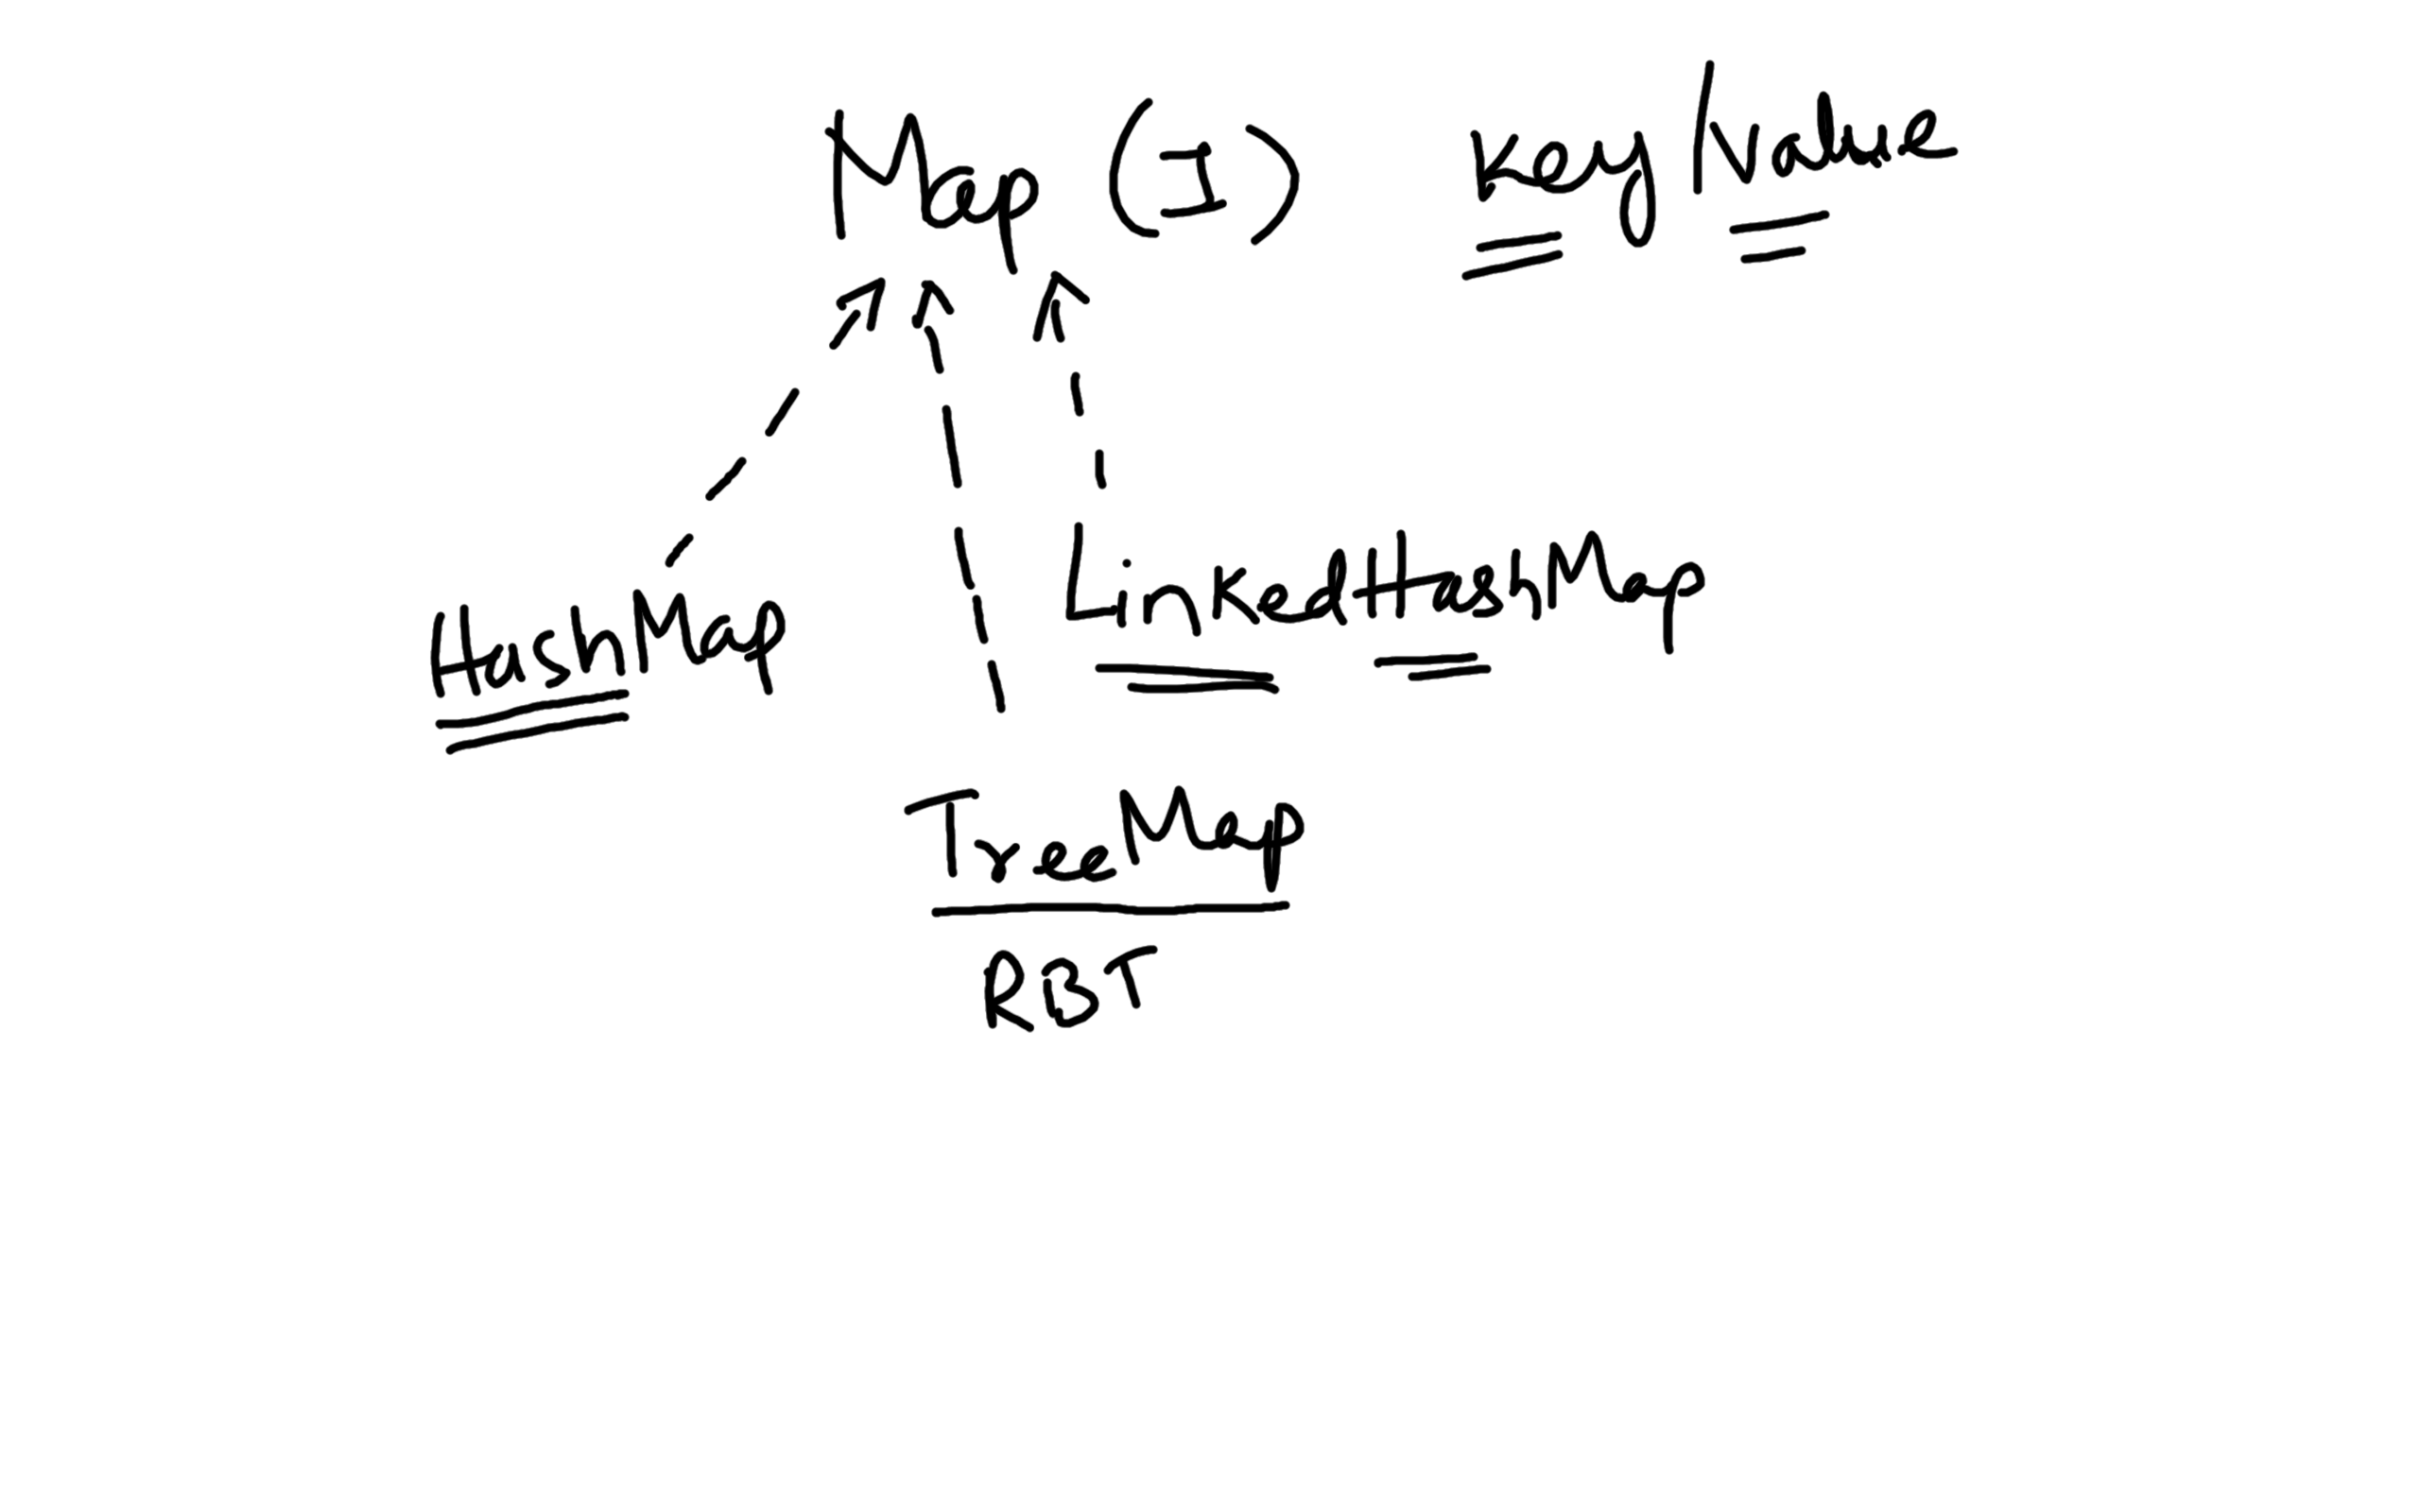 Map (I) key/value
HashMap
LinkedHashMap
TreeMap
RBT